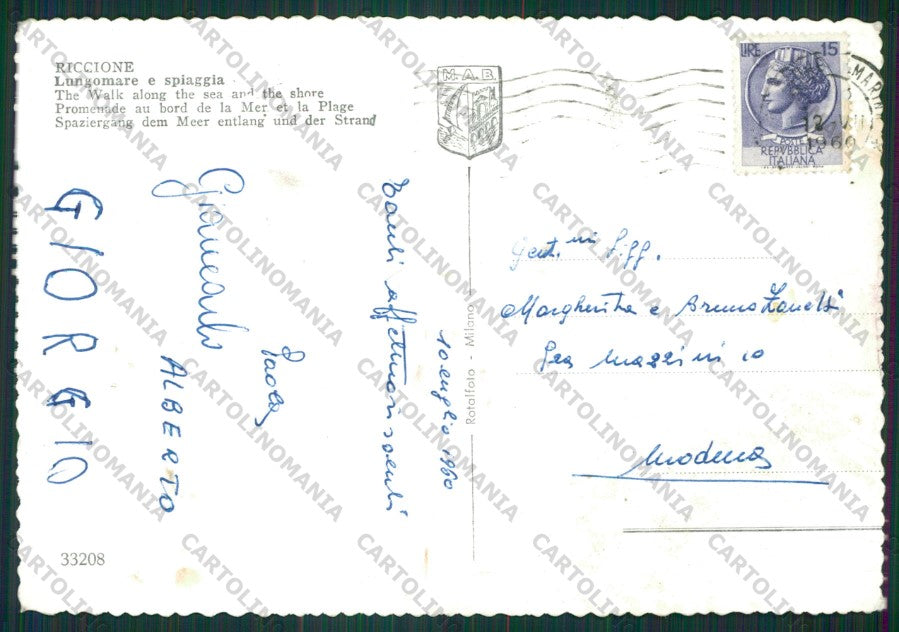 RICCIONE
Lungomare e spiaggia
The Walk along the sea and the shore
Promenade au bord de la Mer et la Plage
Spaziergang dem Meer entlang und der Strand
M.A.B.
LIRE 15
POSTE
REPVBBLICA
ITALIANA
1960
10 luglio 1960
Tanti affettuosi saluti
Paola
Giancarlo
ALBERTO
GIORGIO
Rotalfoto - Milano
Gent.mi Sigg.
Margherita e Bruno Zanetti
Mazzini 10
Modena
33208
CARTOLINOMANIA